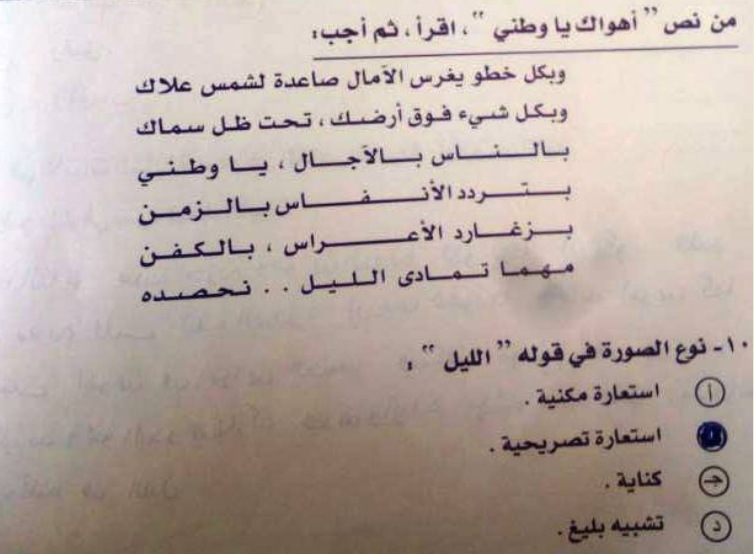 من نص " أهواك يا وطني " ، اقرأ ، ثم أجب :
وبكل خطو يغرس الآمال صاعدة لشمس علاك
وبكل شيء فوق أرضك ، تحت ظل سماك
بالناس بالآجال ، يا وطني
بتردد الأنفاس بالزمن
بزغارد الأعراس ، بالكفن
مهما تمادى الليل . . نحصده
١٠- نوع الصورة في قوله " الليل " :
أ استعارة مكنية .
استعارة تصريحية .
جـ كناية .
د تشبيه بليغ .